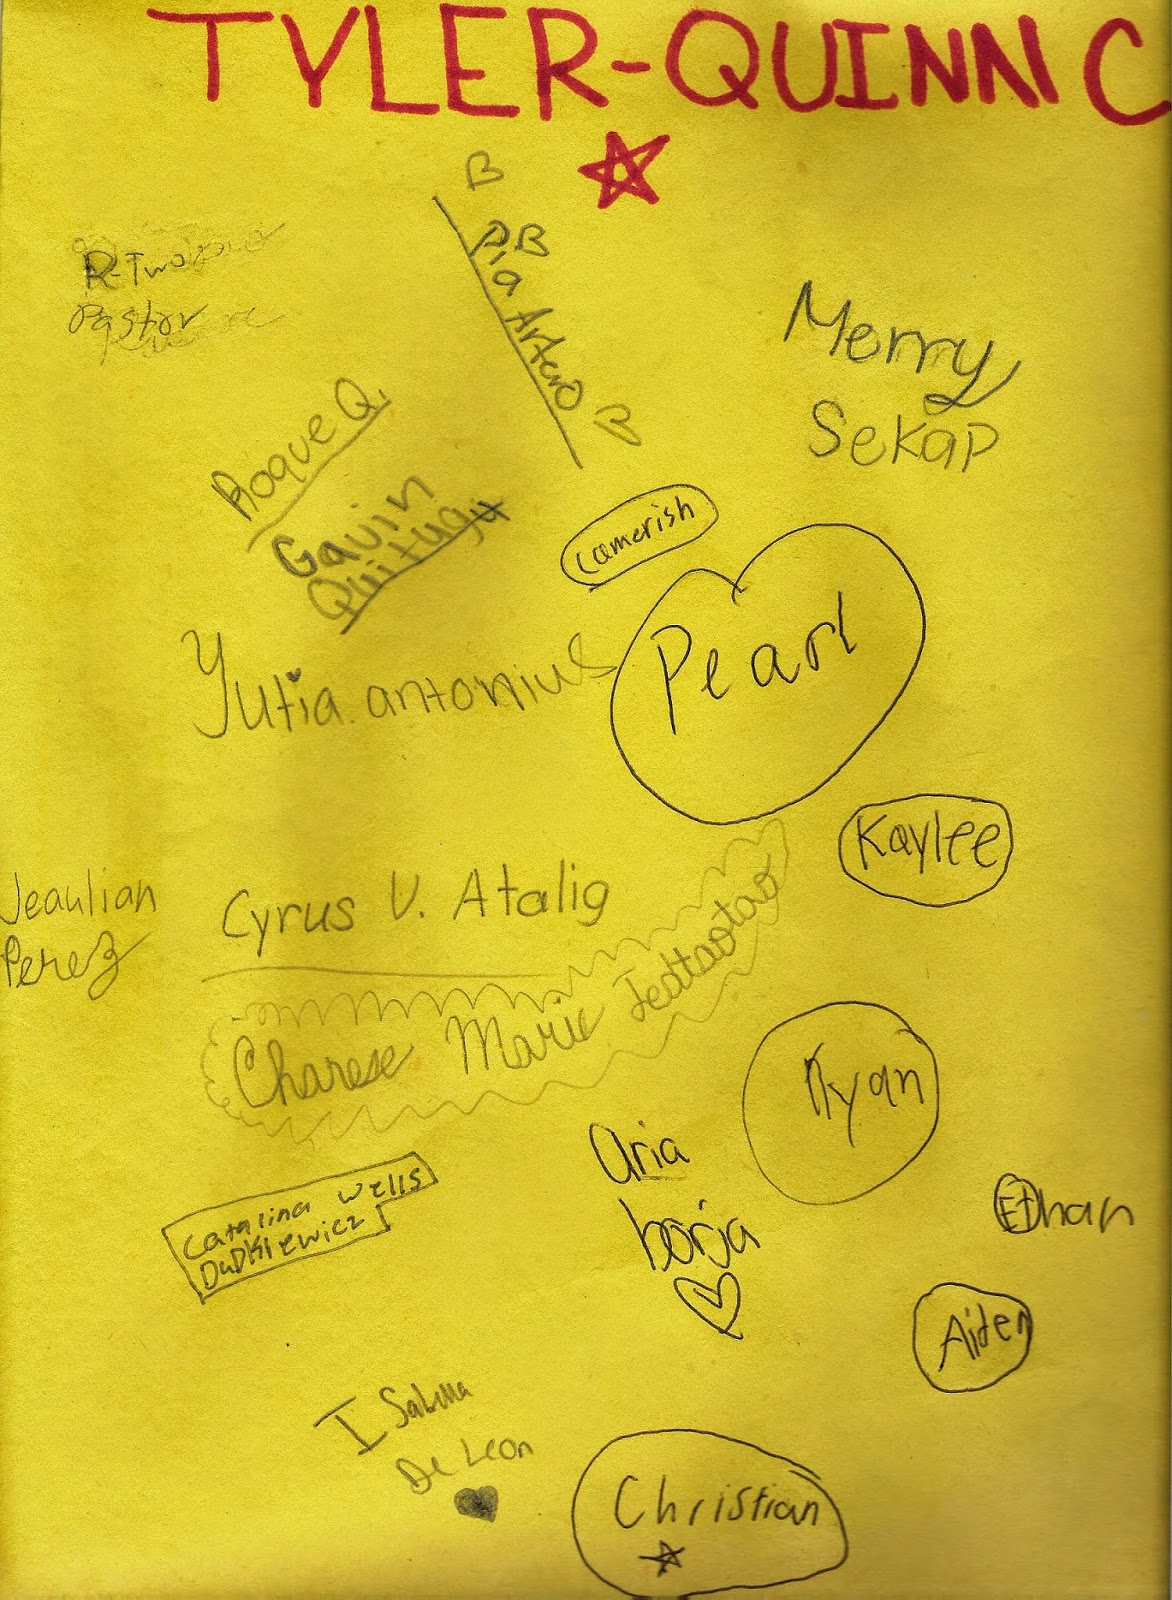 TYLER-QUINN C
R-Two
Pastor
Pia Artero
Merry
Sekap
Roque Q.
Gavin
Quitugu
Camerish
Pearl
Yutia antonius
Kaylee
Jeaulian
Perez
Cyrus V. Atalig
Charese Marie
Ryan
Aria
borja
Ethan
Catalina Wells
DuDKiewicz
Aiden
ISabella
De Leon
Christian